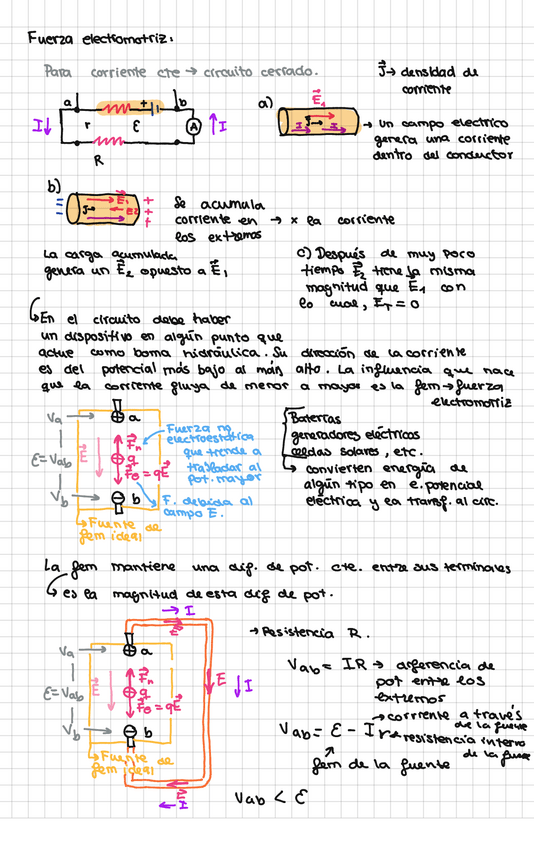 Fuerza electromotriz:
Para corriente cte → circuito cerrado.
J→ densidad de
corriente
a
+
b
I↓
r
ε
A
↑I
R
a)
E₁
J→
I
I
→ un campo electrico
genera una corriente
dentro del conductor
b)
J→
E₁
E₂
+
+
+
Se acumula
corriente en → x la corriente
los extremos
La carga acumulada
genera un E₂ opuesto a E₁
c) Después de muy poco
tiempo E₂ tiene la misma
magnitud que E₁ con
lo cual, ET = 0
↳En el circuito debe haber
un dispositivo en algún punto que
actue como boma hidráulica. Su dirección de la corriente
es del potencial más bajo al más alto. La influencia que hace
que la corriente fluya de menor a mayor es la fem → fuerza
electromotriz
Va →
a
ε=Vab
E
Fn
q
Fe = qE
Vb →
b
Fuerza no
electroestática
que tiende a
trasladar al
pot. mayor
F. debida al
campo E.
↳ Fuente de
fem ideal
Baterías
generadores eléctricos
celdas solares, etc.
↳ convierten energía de
algún tipo en e. potencial
eléctrica y la transf. al circ.
La fem mantiene una dif. de pot. cte. entre sus terminales
↳ es la magnitud de esta dif de pot.
→ I
E
→ Resistencia R.
Va →
a
ε=Vab
E
Fn
q
Fe = qE
Vb →
b
E ↓I
↳ Fuente de
fem ideal
E
← I
Vab = IR → diferencia de
pot entre los
extremos
→ corriente a través
de la fuente
Vab = ε - Ir → resistencia interna
de la fuente
fem de la fuente
Vab < ε